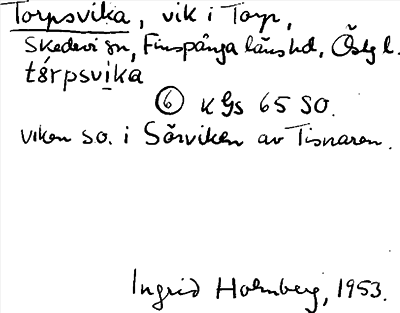 Torpsvika, vik i Torp,
Skedevi sn, Finspånga länshd, Östg l.
tórpsvika
⑥ K Gs 65 SO.
viken so. i Sörviken av Tisnaren.
Ingrid Holmberg, 1953.